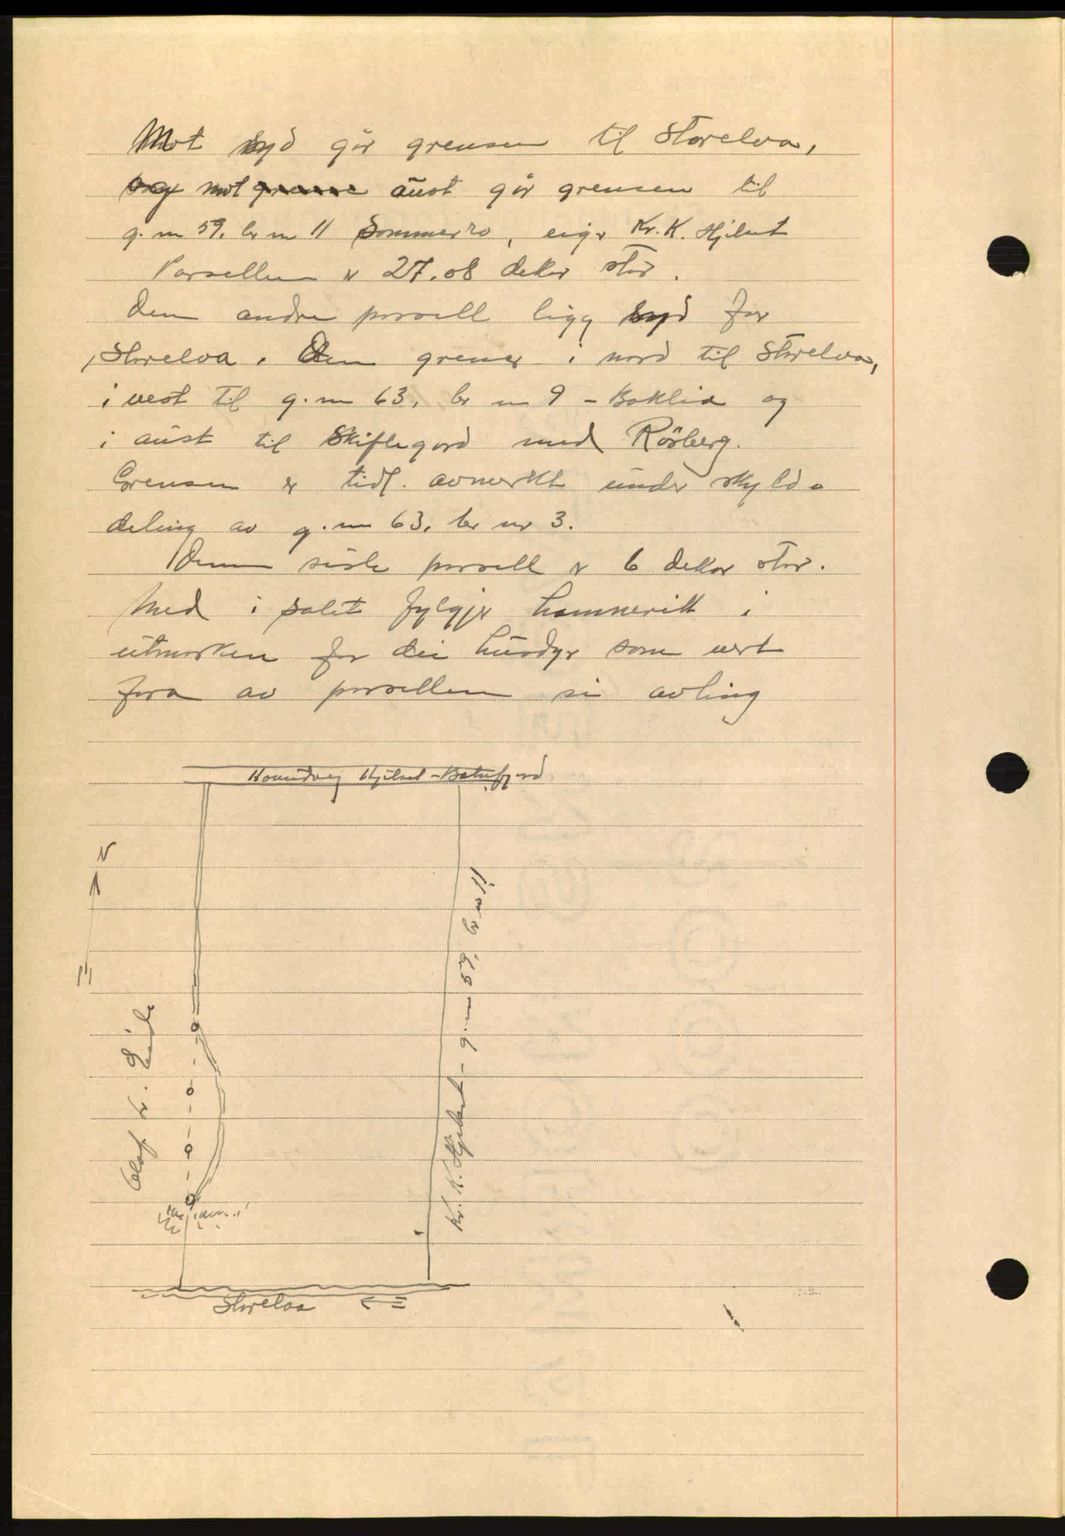 Mot syd går grensen til Storelva,
og mot aust går grensen til
g. nr 59, br nr 11 Sommerro, eigr Kr. K. Hjelset
Parsellen er 27.08 dekar stor.
Den andre parsell ligg syd for
Storelva. Den grenser i nord til Storelva,
i vest til g. nr 63, br nr 9 - Baklia og
i aust til Skiftegard med Rösberg.
Grensen er tidl. avmerkt under skyld-
deling av g. nr 63, br nr 3.
Denne siste parsell er 6 dekar stor.
Med i salet fylgjer hamnerett i
utmarken for dei husdyr som vert
fora av parsellen si avling
Hovudveg Hjelset - Batnfjord
N
Olaf Kr. Lide
Kr. K. Hjelset - g. nr 59, br nr 11
Storelva